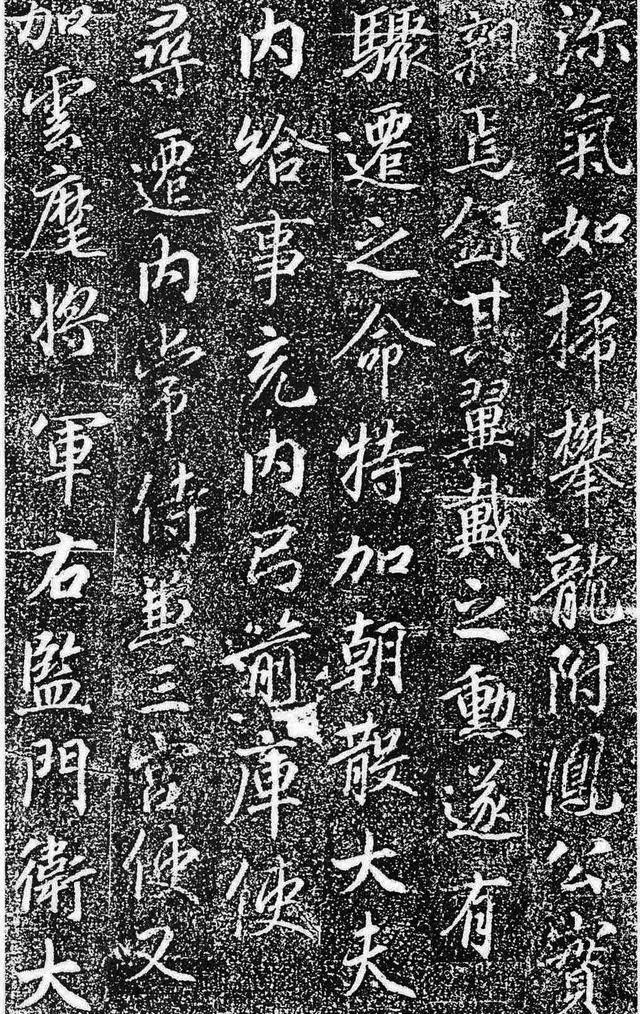 沴氣如掃攀龍附鳳公實
親焉錄其翼戴之勳遂有
驟遷之命特加朝散大夫
内給事充内弓箭庫使
尋遷内常侍兼三宮使又
加雲麾將軍右監門衛大